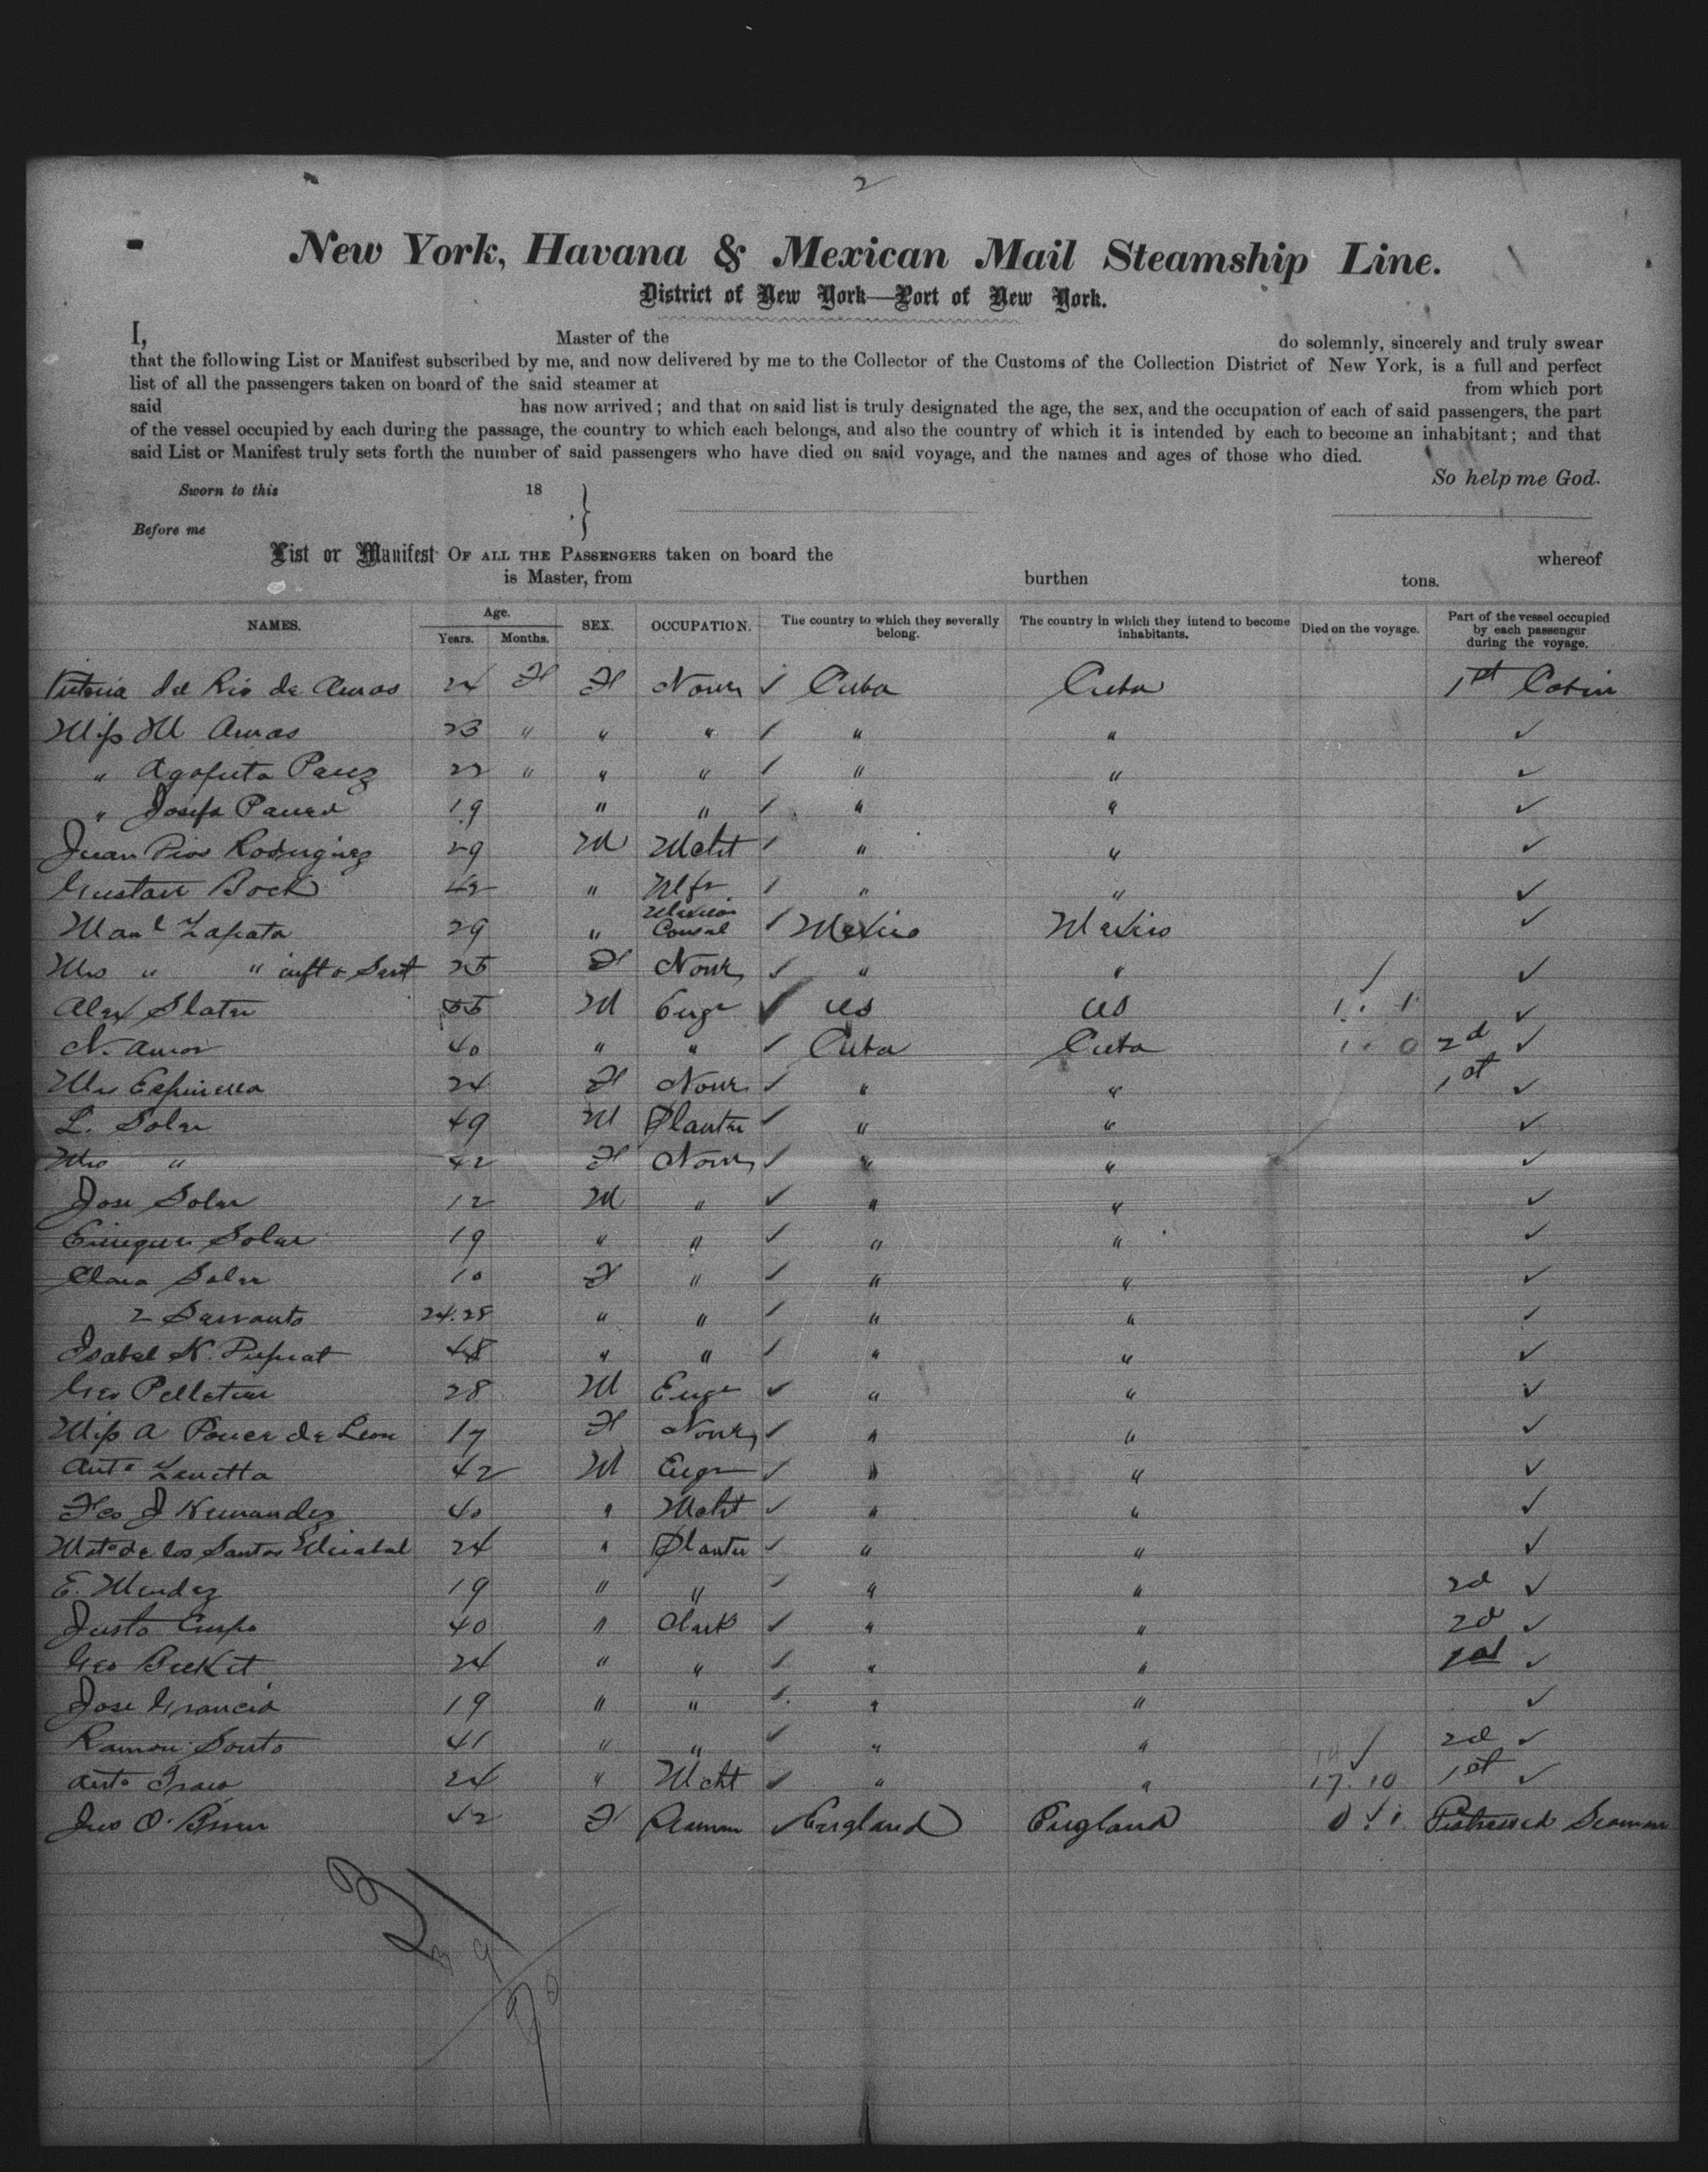 2
New York, Havana & Mexican Mail Steamship Line.
District of New York—Port of New York.
I, Master of the do solemnly, sincerely and truly swear
that the following List or Manifest subscribed by me, and now delivered by me to the Collector of the Customs of the Collection District of New York, is a full and perfect
list of all the passengers taken on board of the said steamer at from which port
said has now arrived; and that on said list is truly designated the age, the sex, and the occupation of each of said passengers, the part
of the vessel occupied by each during the passage, the country to which each belongs, and also the country of which it is intended by each to become an inhabitant; and that
said List or Manifest truly sets forth the number of said passengers who have died on said voyage, and the names and ages of those who died.
So help me God.
Sworn to this 18
Before me
List or Manifest OF ALL THE PASSENGERS taken on board the whereof
is Master, from burthen tons.
NAMES. Age. Years. Months. SEX. OCCUPATION. The country to which they severally belong. The country in which they intend to become inhabitants. Died on the voyage. Part of the vessel occupied by each passenger during the voyage.
Victoria del Rio de Armas 24 F F None ✓ Cuba Cuba 1st Cabin
Miss M Armas 23 " " " ✓ " " ✓
" 22 " " " ✓ " " ✓
" Josefa 19 " " ✓ " " ✓
Juan Pio Rodriguez 29 M Mcht ✓ " " ✓
Gustav Bock 42 " Mfr ✓ " " ✓
Manl Zapata 29 " Mexican Consul ✓ Mexico Mexico ✓
Mrs " " inft & Sert 25 F None ✓ " " ✓
Alex Slater 55 M Engr ✓ US US 1. 1 ✓
N. Amor 40 " " ✓ Cuba Cuba 1. 0 2d ✓
24 F None ✓ " " 1st ✓
L. Solar 49 M Planter ✓ " " ✓
Mrs " 42 F None ✓ " " ✓
Jose Solar 12 M " ✓ " " ✓
Enrique Solar 19 " " ✓ " " ✓
Clara Solar 10 F " ✓ " " ✓
2 Servants 24.28 " " ✓ " " ✓
Isabel N. 48 " " ✓ " " ✓
Geo Pelletier 28 M Engr ✓ " " ✓
Miss A Ponce de Leon 17 F None ✓ " " ✓
Anto 42 M Engr ✓ " " ✓
Fco J Hernandez 40 " Mcht ✓ " " ✓
de los Santos 24 " Planter ✓ " " ✓
E. Mendez 19 " " ✓ " " 2d ✓
Justo Crespo 40 " Clerk ✓ " " 2d ✓
Geo Beckit 24 " " ✓ " " ✓
Jose 19 " " ✓ " " ✓
Ramon Souto 41 " " ✓ " " 2d ✓
Anto 24 " Mcht ✓ " " 17. 10 1st ✓
Jno O'Brien 42 F ✓ England England Distressed Seaman